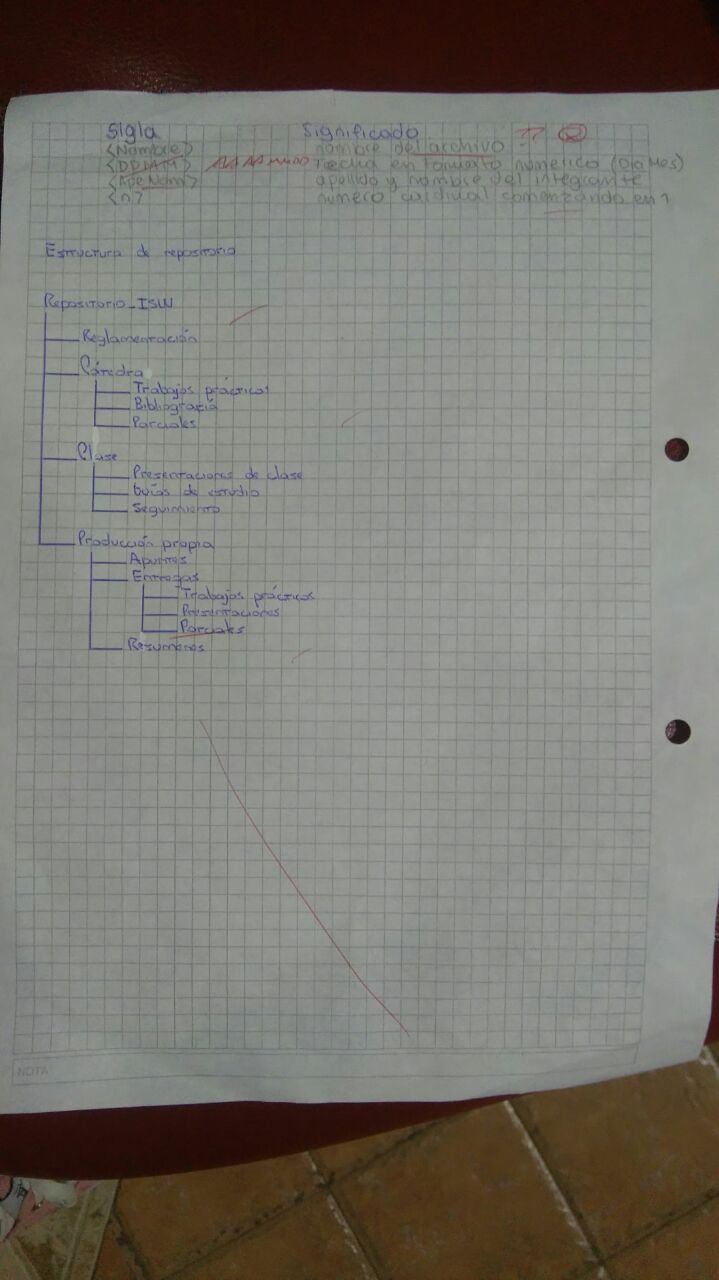 Sigla Significado
<Nombre> nombre del archivo ??
<DDMM> fecha en formato numérico (Dia Mes)
<ApeNom> apellido y nombre del integrante
<n> numero cardinal comenzando en 1
Estructura de repositorio
Repositorio_ISW
Reglamentación
Cátedra
Trabajos prácticos
Bibliografía
Parciales
Clase
Presentaciones de clase
Guías de estudio
Seguimiento
Producción propia
Apuntes
Entregas
Trabajos prácticos
Presentaciones
Parciales
Resumenes
NOTA